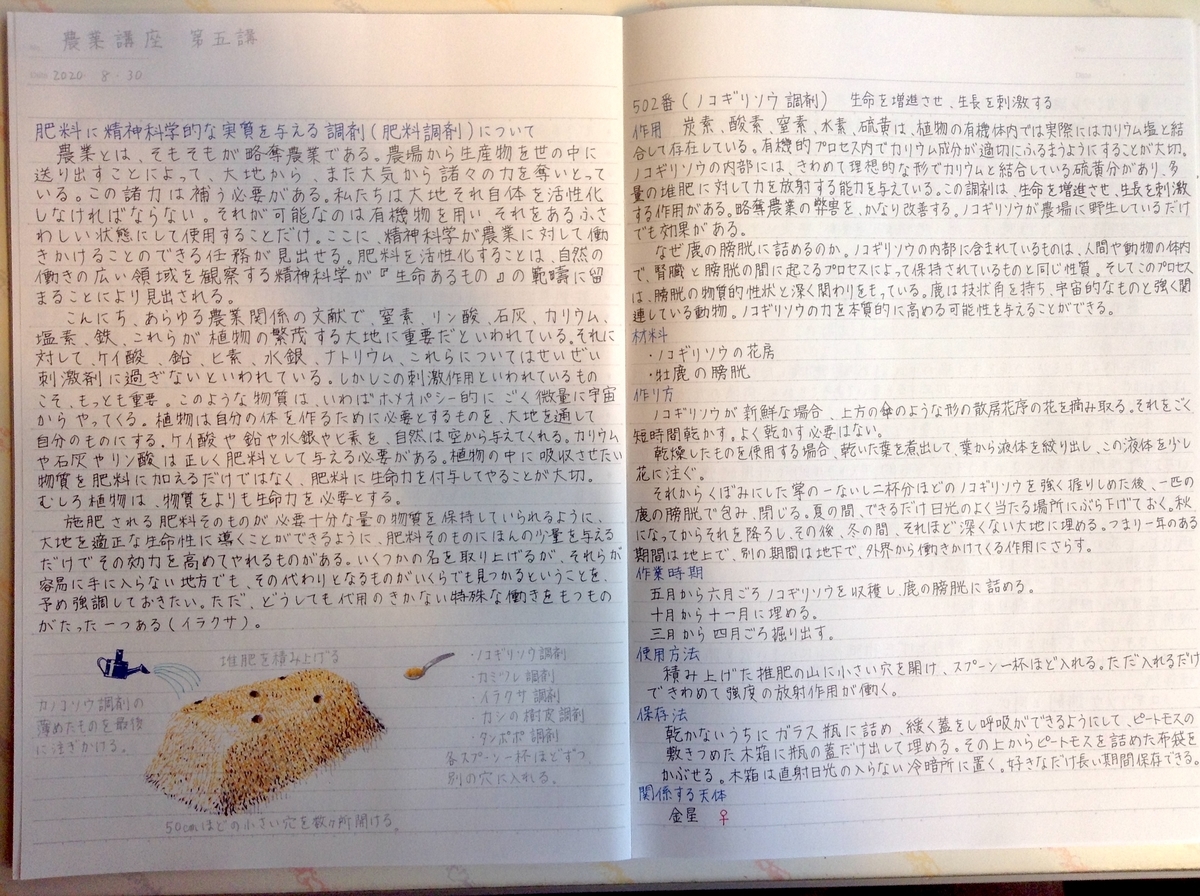 農業講座 第五講
2020 8・30
肥料に精神科学的な実質を与える調剤(肥料調剤)について
農業とは、そもそもが略奪農業である。農場から生産物を世の中に
送り出すことによって、大地から、また大気から諸々の力を奪いとって
いる。この諸力は補う必要がある。私たちは大地それ自体を活性化
しなければならない。それが可能なのは有機物を用い、それをあるふさ
わしい状態にして使用することだけ。ここに、精神科学が農業に対して働
きかけることのできる任務が見出せる。肥料を活性化することは、自然の
働きの広い領域を観察する精神科学が『生命あるもの』の範疇に留
まることにより見出される。
こんにち、あらゆる農業関係の文献で、窒素、リン酸、石灰、カリウム、
塩素、鉄、これらが植物の繁茂する大地に重要だといわれている。それに
対して、ケイ酸、鉛、ヒ素、水銀、ナトリウム、これらについてはせいぜい
刺激剤に過ぎないといわれている。しかしこの刺激作用といわれているもの
こそ、もっとも重要。このような物質は、いわばホメオパシー的に ごく微量に宇宙
からやってくる。植物は自分の体を作るために必要とするものを、大地を通して
自分のものにする。ケイ酸や鉛や水銀やヒ素を、自然は空から与えてくれる。カリウム
や石灰やリン酸は正しく肥料として与える必要がある。植物の中に吸収させたい
物質を肥料に加えるだけではなく、肥料に生命力を付与してやることが大切。
むしろ植物は、物質をよりも生命力を必要とする。
施肥される肥料そのものが必要十分な量の物質を保持していられるように、
大地を適正な生命性に導くことができるように、肥料そのものにほんの少量を与える
だけでその効力を高めてやれるものがある。いくつかの名を取り上げるが、それらが
容易に手に入らない地方でも、その代わりとなるものがいくらでも見つかるということを、
予め強調しておきたい。ただ、どうしても代用のきかない特殊な働きをもつもの
がたった一つある(イラクサ)。
堆肥を積み上げる
カノコソウ調剤の
薄めたものを最後
に注ぎかける。
・ノコギリソウ調剤
・カミツレ調剤
・イラクサ調剤
・カシの樹皮調剤
・タンポポ調剤
各スプーン一杯ほどずつ、
別の穴に入れる。
50cmほどの小さい穴を数ヶ所開ける。
502番(ノコギリソウ調剤) 生命を増進させ、生長を刺激する
作用 炭素、酸素、窒素、水素、硫黄は、植物の有機体内では実際にはカリウム塩と結
合して存在している。有機的プロセス内でカリウム成分が適切にふるまうようにすることが大切。
ノコギリソウの内部には、きわめて理想的な形でカリウムと結合している硫黄分があり、多
量の堆肥に対して力を放射する能力を与えている。この調剤は、生命を増進させ、生長を刺激
する作用がある。略奪農業の弊害を、かなり改善する。ノコギリソウが農場に野生しているだけ
でも効果がある。
なぜ鹿の膀胱に詰めるのか。ノコギリソウの内部に含まれているものは、人間や動物の体内
で、腎臓と膀胱の間に起こるプロセスによって保持されているものと同じ性質。そしてこのプロセス
は、膀胱の物質的性状と深く関わりをもっている。鹿は枝状角を持ち、宇宙的なものと強く関
連している動物。ノコギリソウの力を本質的に高める可能性を与えることができる。
材料
・ノコギリソウの花房
・牡鹿の膀胱
作り方
ノコギリソウが新鮮な場合、上方の傘のような形の散房花序の花を摘み取る。それをごく
短時間乾かす。よく乾かす必要はない。
乾燥したものを使用する場合、乾いた葉を煮出して、葉から液体を絞り出し、この液体を少し
花に注ぐ。
それからくぼみにした掌の一ないし二杯分ほどのノコギリソウを強く握りしめた後、一匹の
鹿の膀胱で包み、閉じる。夏の間、できるだけ日光のよく当たる場所にぶら下げておく。秋
になってからそれを降ろし、その後、冬の間、それほど深くない大地に埋める。つまり一年のある
期間は地上で、別の期間は地下で、外界から働きかけてくる作用にさらす。
作業時期
五月から六月ごろノコギリソウを収穫し、鹿の膀胱に詰める。
十月から十一月に埋める。
三月から四月ごろ掘り出す。
使用方法
積み上げた堆肥の山に小さい穴を開け、スプーン一杯ほど入れる。ただ入れるだけ
できわめて強度の放射作用が働く。
保存法
乾かないうちにガラス瓶に詰め、緩く蓋をし呼吸ができるようにして、ピートモスの
敷きつめた木箱に瓶の蓋だけ出して埋める。その上からピートモスを詰めた布袋を
かぶせる。木箱は直射日光の入らない冷暗所に置く。好きなだけ長い期間保存できる。
関係する天体
金星 ♀